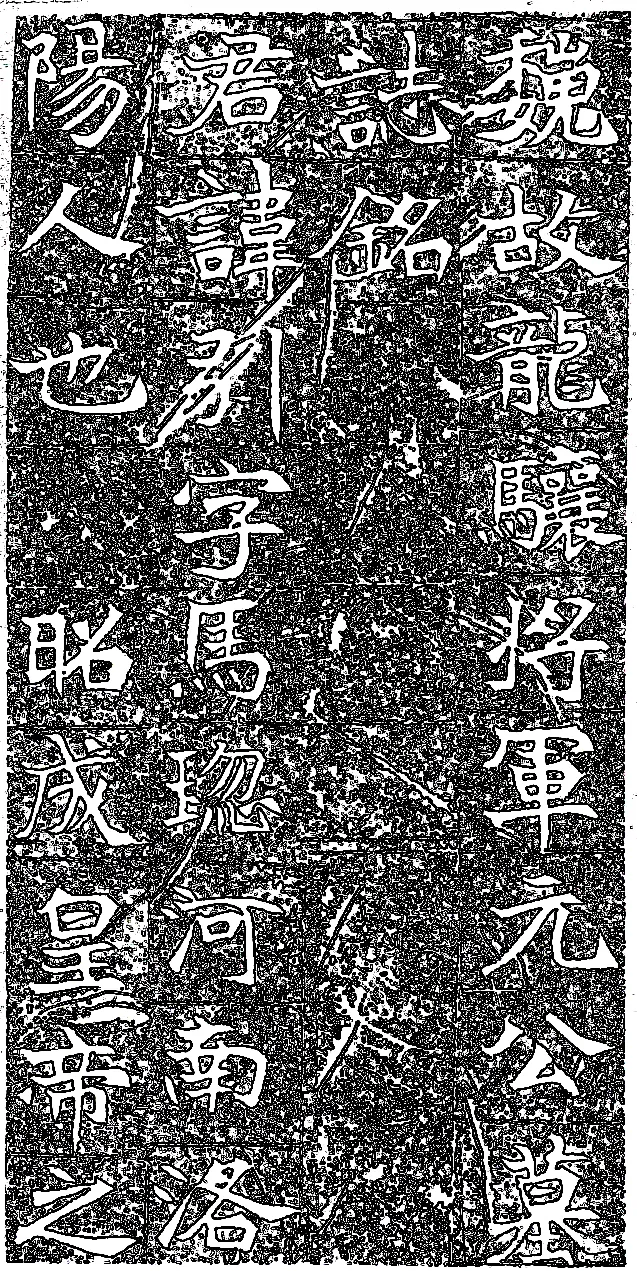 魏故龍驤将軍元公墓
誌銘
君諱引字馬河南洛
陽人也 昭成皇帝之